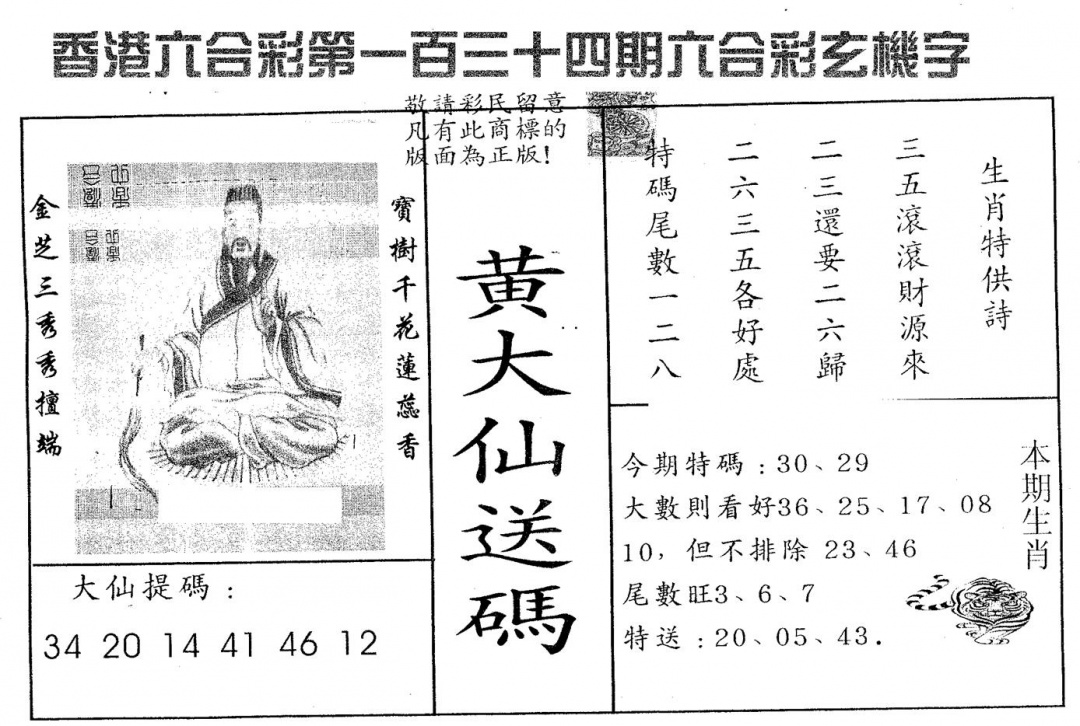 香港六合彩第一百三十四期六合彩玄機字
敬請彩民留意
凡有此商標的
版面為正版!
生肖特供詩
三五滾滾財源來
二三還要二六歸
二六三五各好處
特碼尾數一二八
寶樹千花蓮蕊香
金芝三秀秀擅端
黃大仙送碼
大仙提碼：
34 20 14 41 46 12
今期特碼：30、29
大數則看好36、25、17、08
10，但不排除 23、46
尾數旺3、6、7
特送：20、05、43.
本期生肖